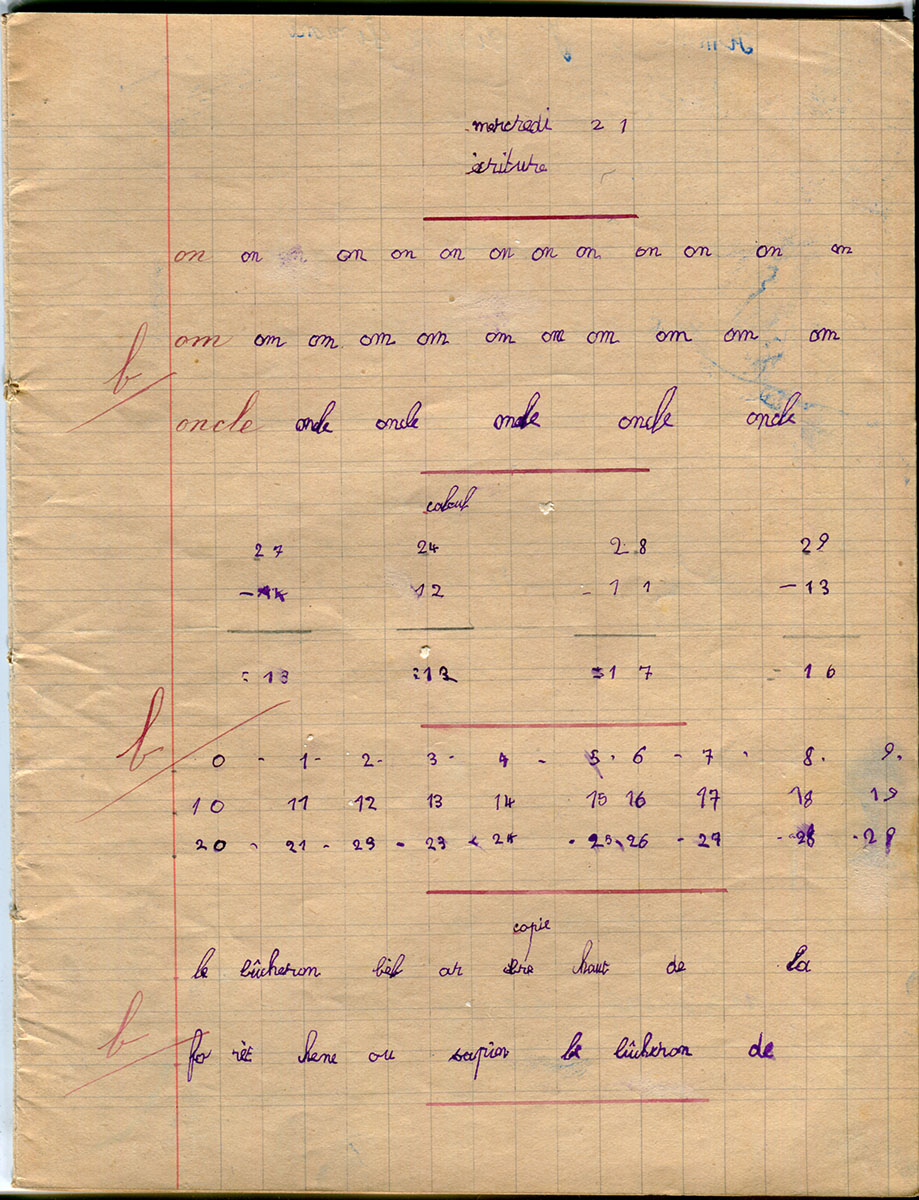 mercredi 21
écriture
on on on on on on on on on on on on on
om om om om om om om om om om om
oncle oncle oncle oncle oncle oncle
calcul
27 24 28 29
- 12 - 11 - 13
= 13 = 12 = 17 16
b
b
0 - 1 - 2 - 3 - 4 - 5 - 6 - 7 - 8 - 9.
10 11 12 13 14 15 16 17 18 19
20 - 21 - 23 - 23 - 24 - 25 - 26 - 27 - 28 - 29
copie
le bûcheron bel ar bre haut de la
b
for rêt hene ou sapin le bûcheron de